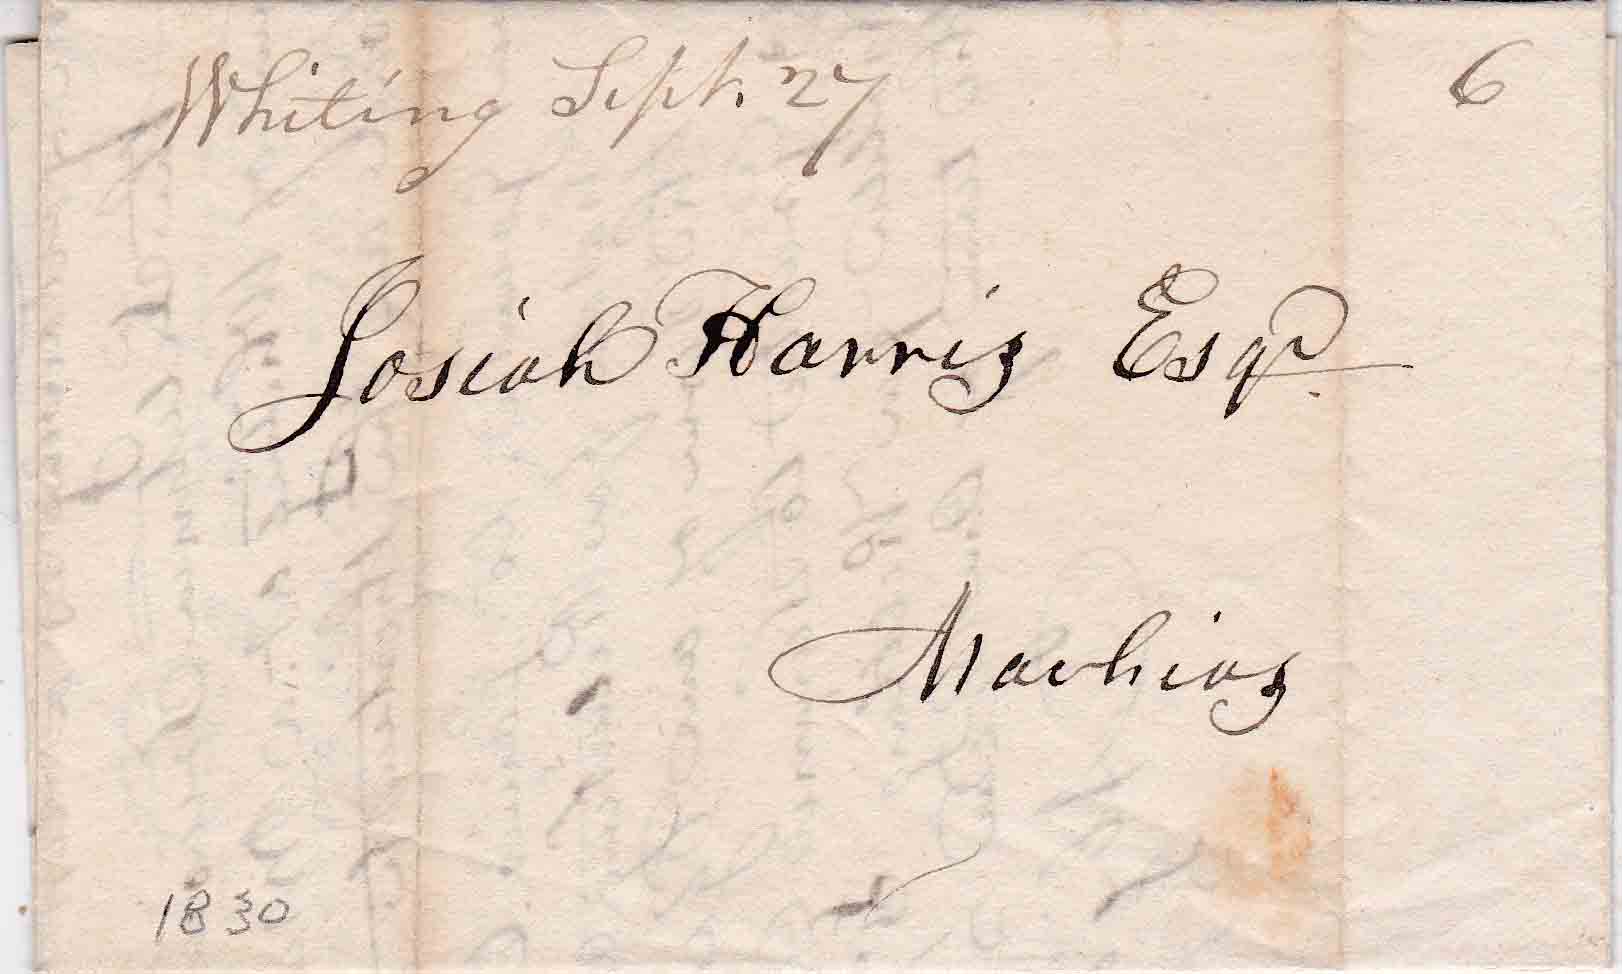 Whiting Sept. 27 6
Josiah Harris Esqr.
Machias
1830